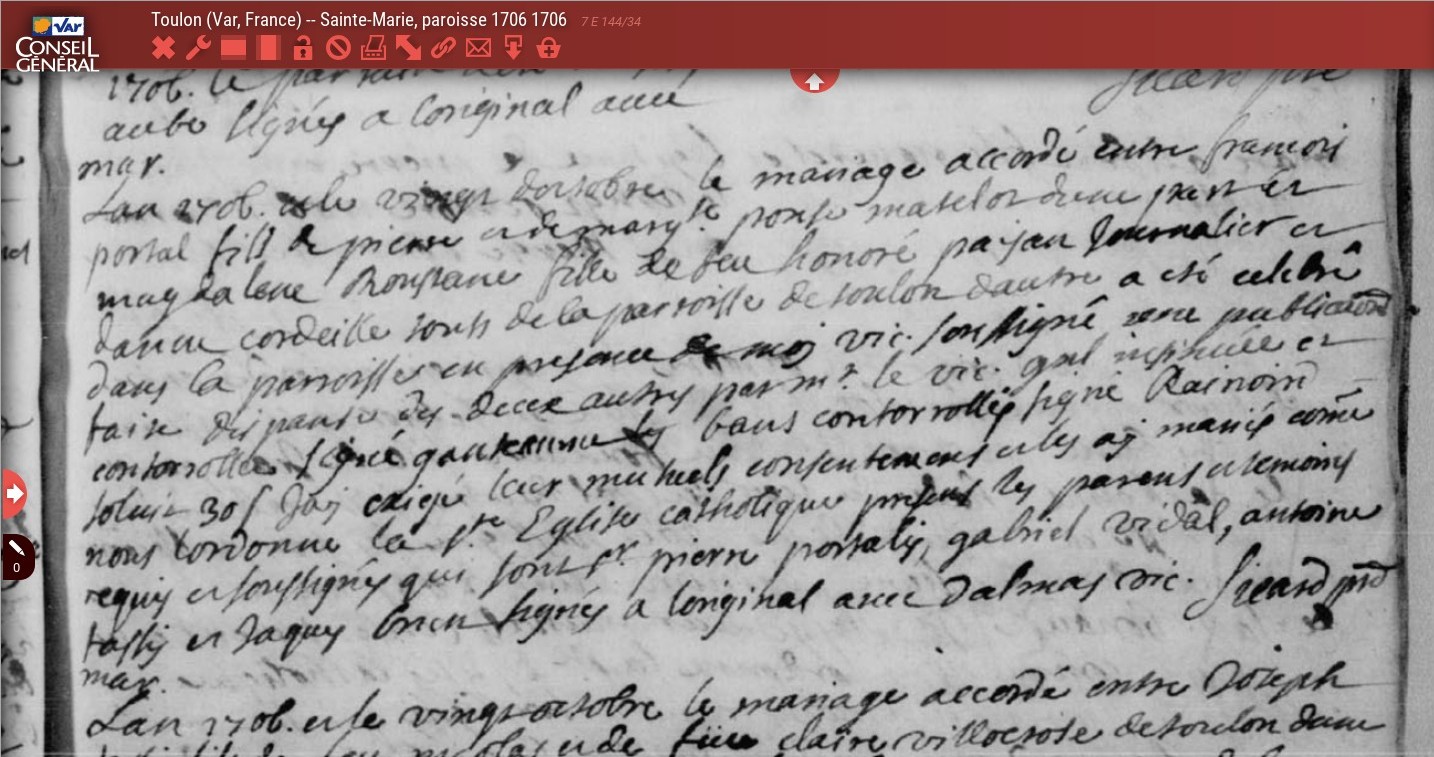 Toulon (Var, France) -- Sainte-Marie, paroisse 1706 1706 7 E 144/34
VAR
CONSEIL
GÉNÉRAL
0
1706. le
aube signés a loriginal avec Sicard ptre
mar.
Lan 1706. et le vingt doctobre le mariage accordé entre francois
portal fills de pierre et de marg.te ponse matelot dune part et
magdalene Roustane fille de feu honoré paisan Journalier et
danne cordeille touts de la parroisse de toulon dautre a esté celebré
dans la parroisse en presence de moi vic. soussigné une publication
faite dispanse des deux autres par m.r le vic. gnl insinuée et
contorrollée signé gautier les bans contorrollés signé Rainoird
solvit 30 s Jay exigé leur mutuels consentemens et les ay mariés come
nous lordonne la s.te Eglise catholique presens les parens et temoins
requis et soussignés qui sont s.r pierre portalis, gabriel vidal, antoine
tassy et Jaques brun signés a loriginal avec Dalmas vic. Sicard ptre
mar.
Lan 1706. et le vingt octobre le mariage accordé entre Joseph
nicolas et de feue claire villecrose de toulon dune